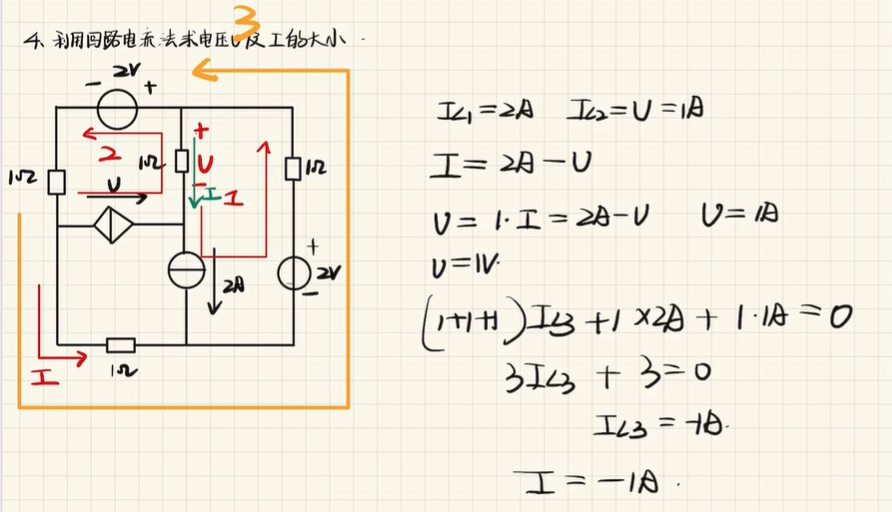 4、利用回路电流法求电压U及I的大小
3
2V
- +
2
1Ω
+
U
-
1Ω
1Ω
U
I
1
2A
+
2V
-
I
1Ω
IL1=2A IL2=U=1A
I=2A-U
U=1·I=2A-U U=1A
U=1V.
(1+1+1)IL3+1×2A+1·1A=0
3IL3+3=0
IL3=-1A.
I=-1A.